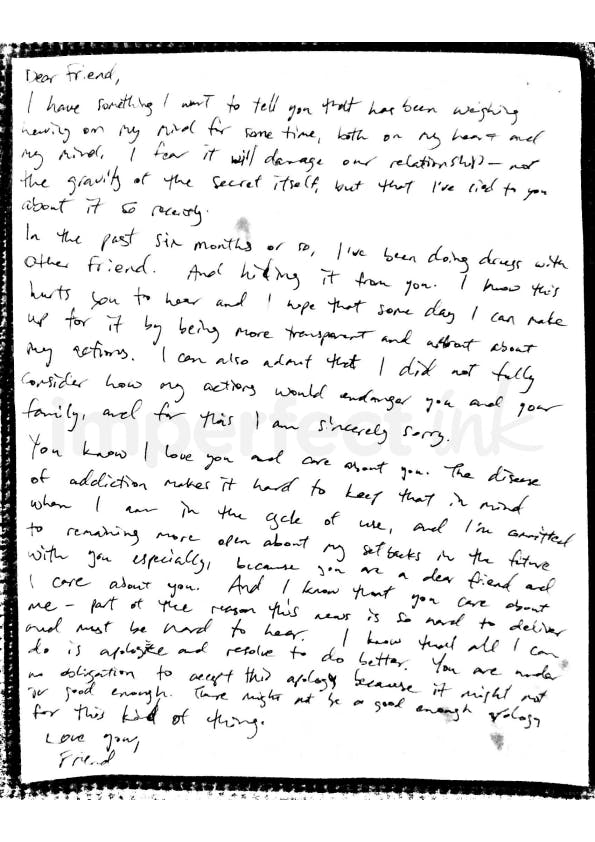 Dear Friend,
I have something I want to tell you that has been weighing
heavily on my mind for some time, both on my heart and
my mind. I fear it will damage our relationship – not
the gravity of the secret itself, but that I've lied to you
about it so recently.
In the past six months or so, I've been doing drugs with
Other Friend. And hiding it from you. I know this
hurts you to hear and I hope that some day I can make
up for it by being more transparent and about
my actions. I can also admit that I did not fully
consider how my actions would endanger you and your
family, and for this I am sincerely sorry.
imperfect ink
You know I love you and care about you. The disease
of addiction makes it hard to keep that in mind
when I am in the cycle of use, and I'm committed
to remaining more open about my setbacks in the future
with you especially, because you are a dear friend and
I care about you. And I know that you care about
me – part of the reason this news is so hard to deliver
and must be hard to hear. I know that all I can
do is apologize and resolve to do better. You are under
no obligation to accept this apology because it might not
be good enough. There might not be a good enough apology
for this kind of thing.
Love you,
Friend